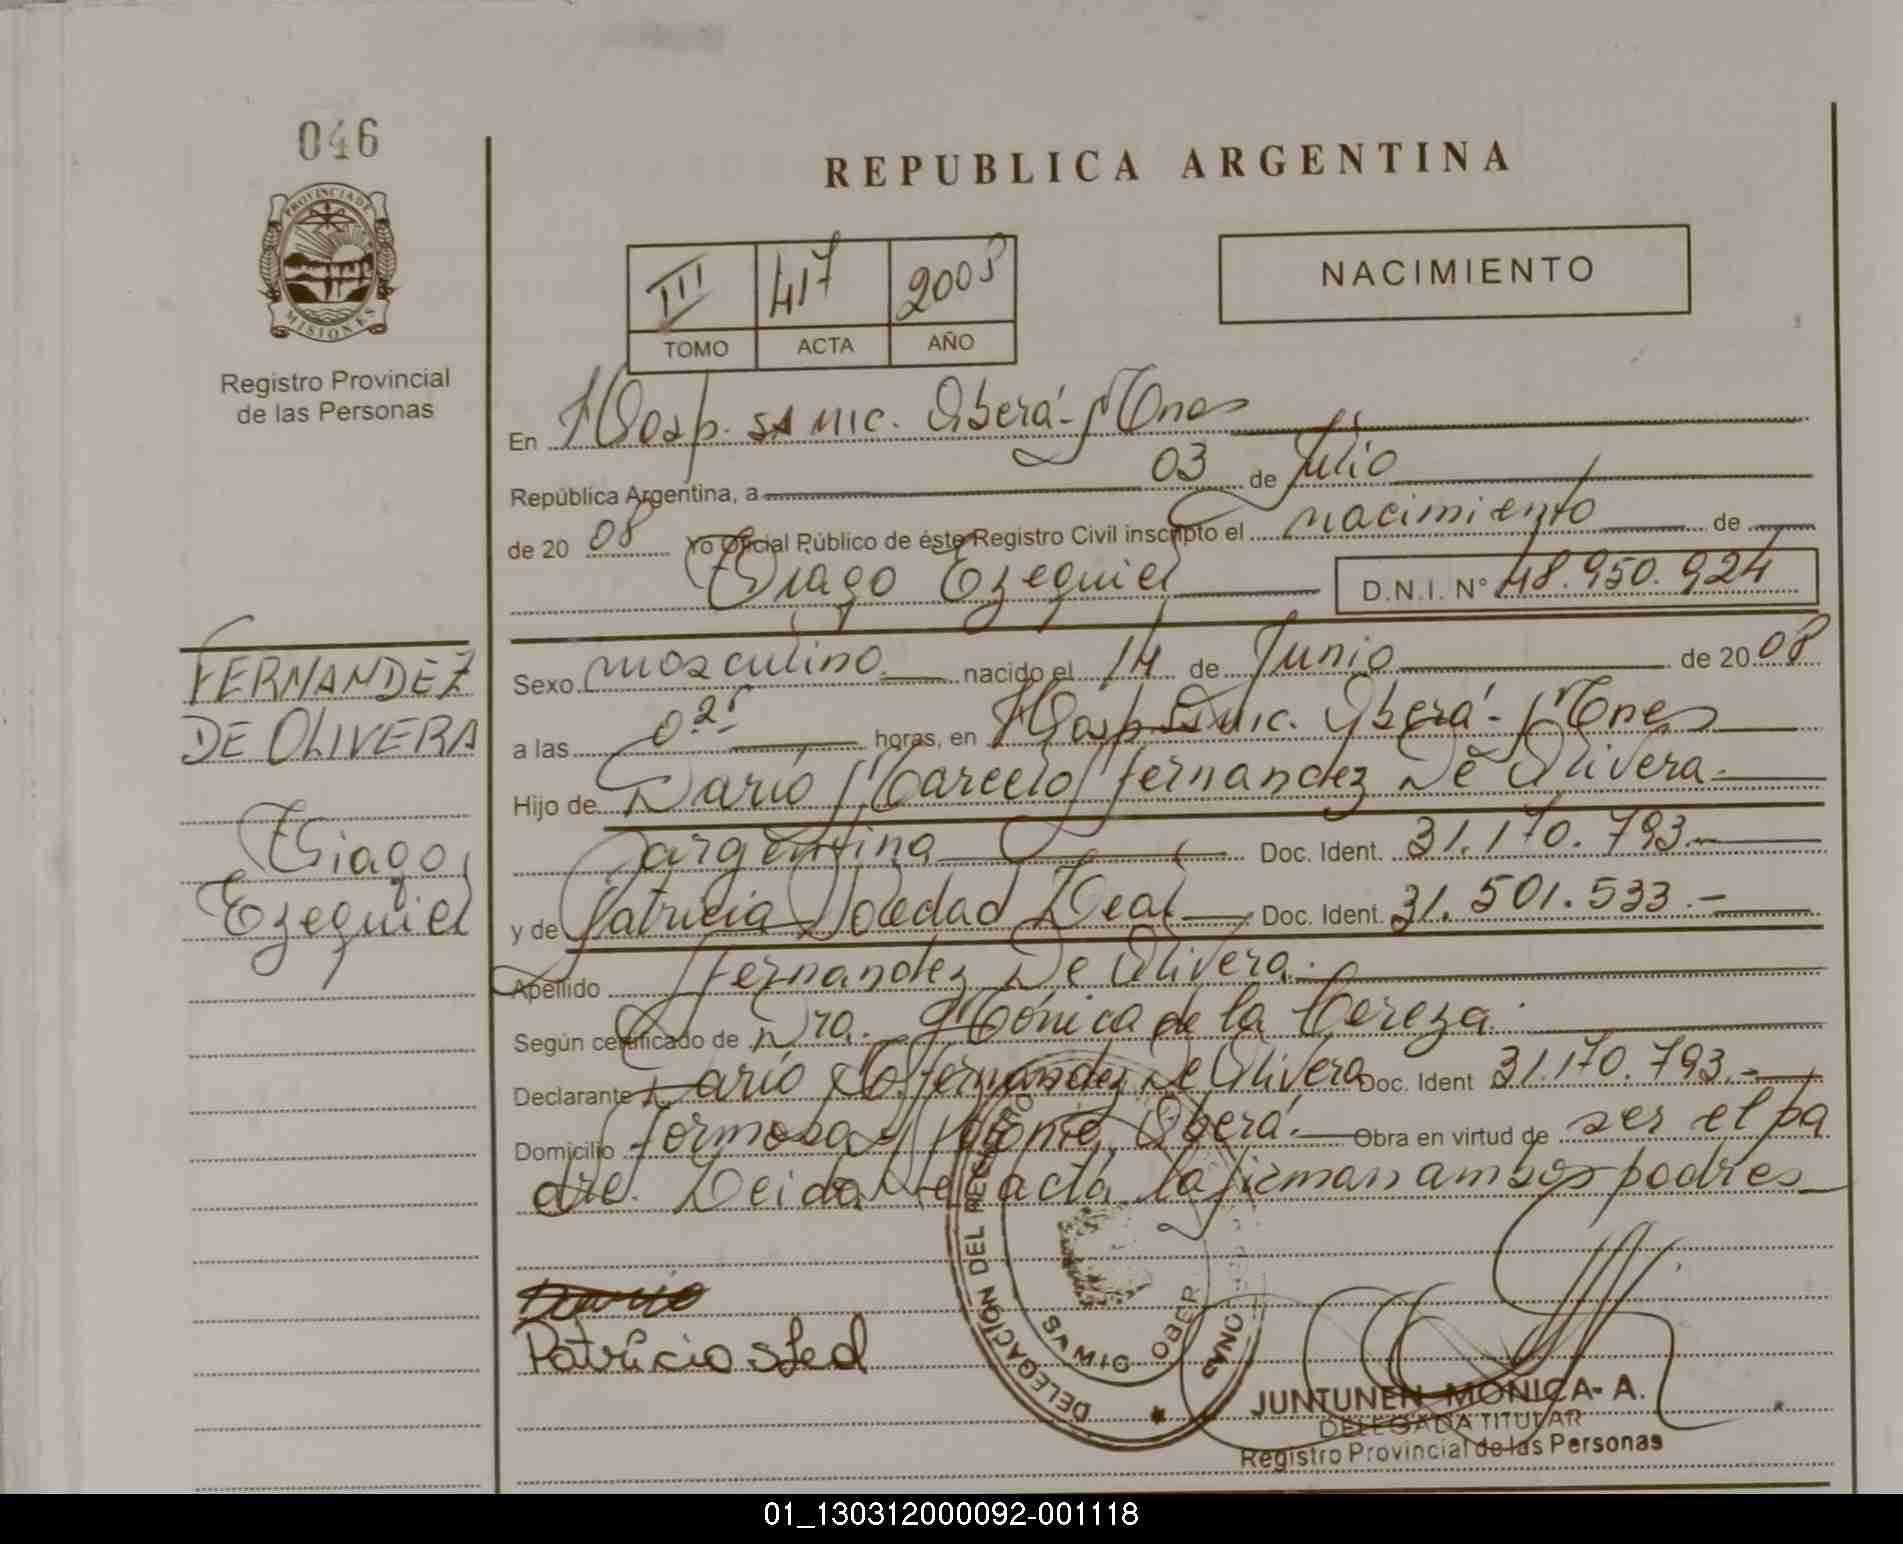 046
REPUBLICA ARGENTINA
PROVINCIA DE
MISIONES
Registro Provincial
de las Personas
III 417 2008
TOMO ACTA AÑO
NACIMIENTO
En Hosp. SAMIC. Oberá - Mnes
República Argentina, a 03 de Julio
de 2008 Yo Oficial Público de éste Registro Civil inscripto el nacimiento de
Thiago Ezequiel D.N.I. N° 48.950.924
FERNANDEZ
DE OLIVERA
Thiago
Ezequiel
Sexo masculino nacido el 14 de Junio de 2008
a las horas, en Hosp SAMIC. Oberá - Mnes
Hijo de Darío Marcelo Fernandez De Olivera.-
argentina Doc. Ident. 31.170.793.-
y de Patricia Soledad Leal Doc. Ident. 31.501.533.-
Apellido Fernandez De Olivera.
Según certificado de Dra. Mónica de la Cereza.
Declarante Darío M. Fernandez De Olivera Doc. Ident 31.170.793.-
Domicilio Formosa y Oberá.- Obra en virtud de ser el pa
dre. Leida el acta la firman ambos padres
Patricia
DELEGACIÓN DEL
JUNTUNEN MONICA A.
DELEGADA TITULAR
Registro Provincial de las Personas
01_130312000092-001118